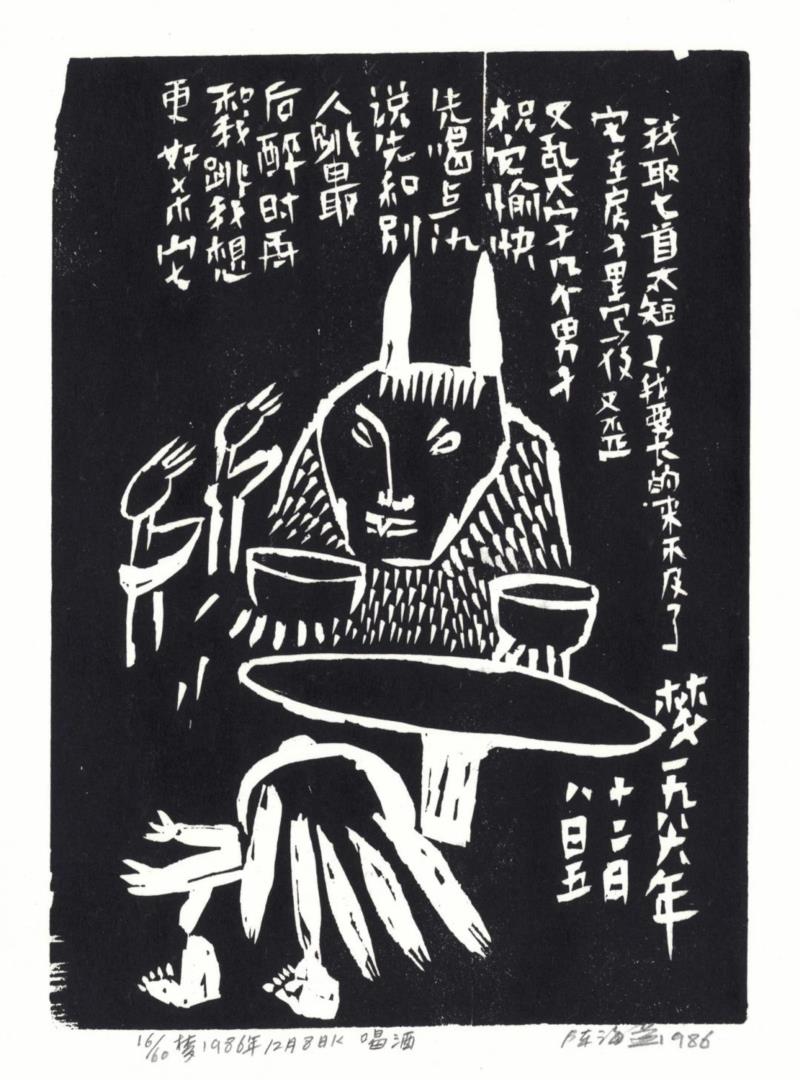 我取匕首太短了我要长的来不及了
它在房子里
又乱大
几个男子
祝它愉快
先喝点氿
说先和别
人跳最
后醉时再
和我跳我想
更好杀
梦一九八六年
十二日
八日五
16/60 梦1986年12月8日K 喝酒
陈海 1986